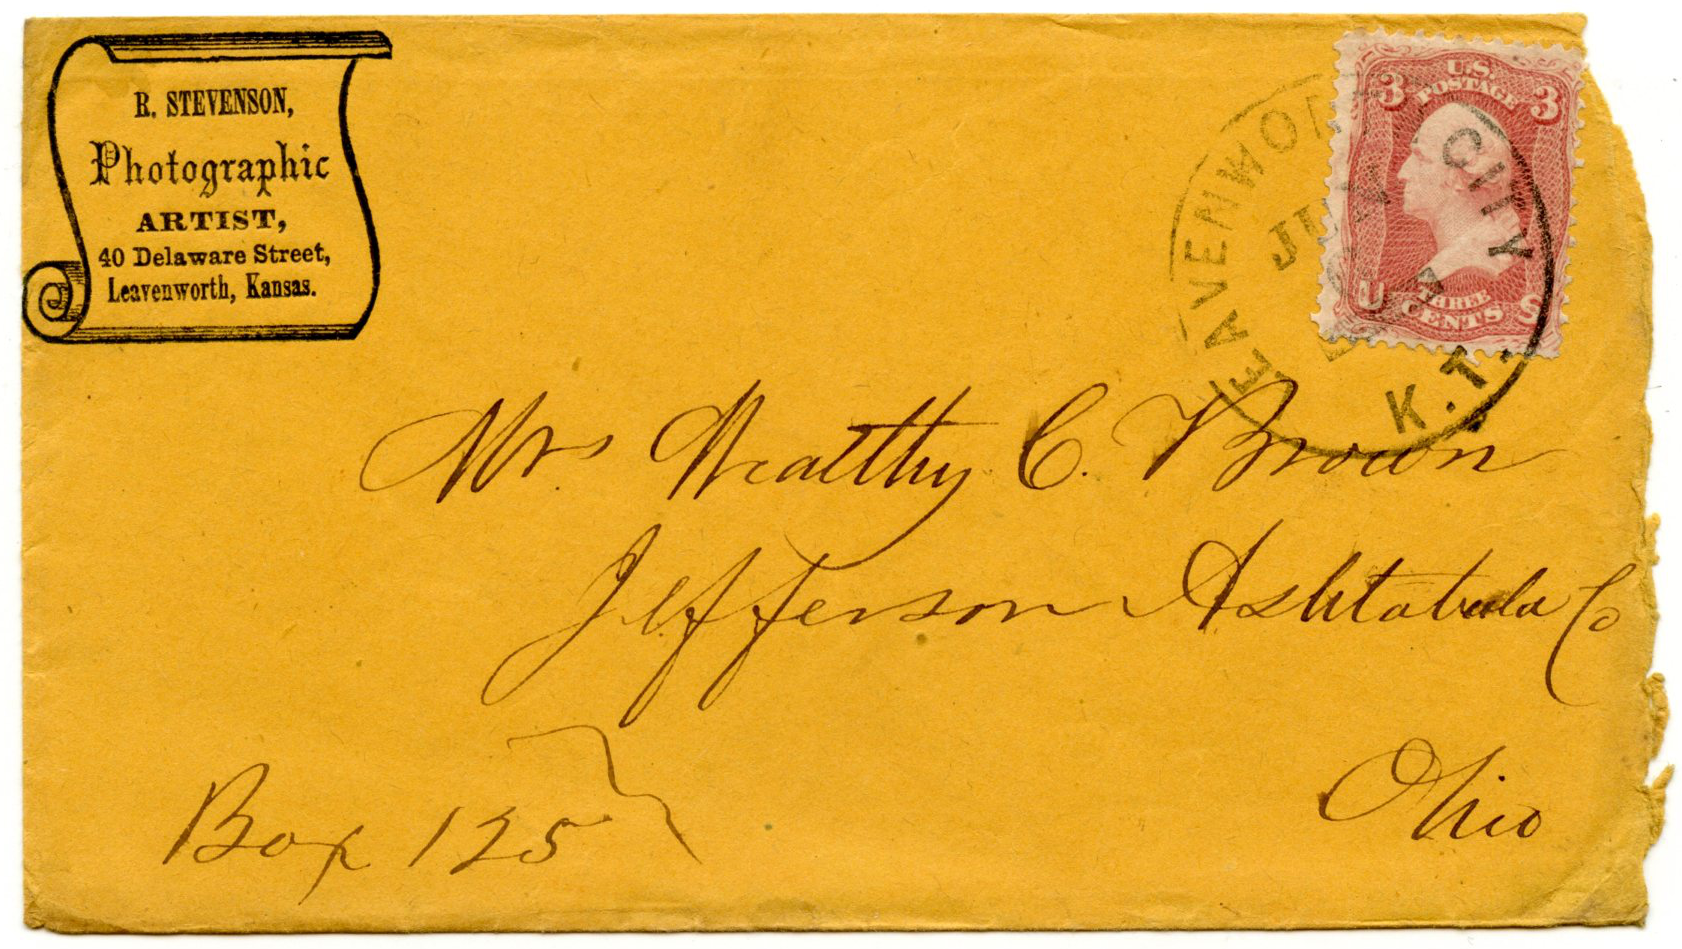 R. STEVENSON,
Photographic
ARTIST,
40 Delaware Street,
Leavenworth, Kansas.
U.S.
POSTAGE
3 3
U S
THREE
CENTS
LEAVENWORTH CITY K.T.
Mrs Wealthy C. Brown
Jefferson Ashtabula Co
Ohio
Box 125